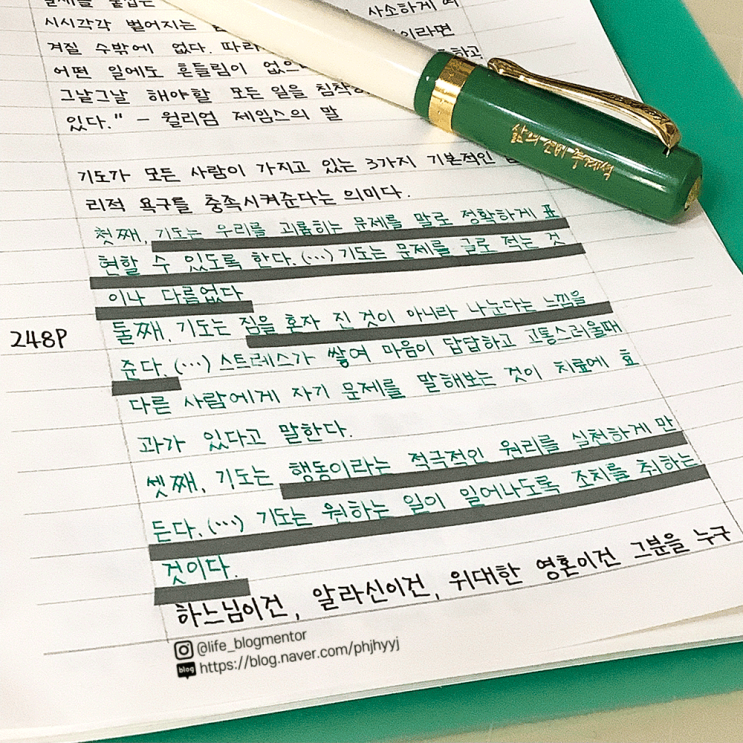 사소하게
시시각각 벌어지는 이라면
겨질 수밖에 없다. 따라 하고
어떤 일에도 흔들림이 없으
그날그날 해야할 모든 일을 침착
있다." - 윌리엄 제임스의 말
기도가 모든 사람이 가지고 있는 3가지 기본적인
리적 욕구를 충족시켜준다는 의미다.
첫째, 기도는 우리를 괴롭히는 문제를 말로 정확하게 표
현할 수 있도록 한다. (…) 기도는 문제를 글로 적는 것
이나 다름없다
248P
둘째, 기도는 짐을 혼자 진 것이 아니라 나눈다는 느낌을
준다. (…) 스트레스가 쌓여 마음이 답답하고 고통스러울때
다른 사람에게 자기 문제를 말해보는 것이 치료에 효
과가 있다고 말한다.
셋째, 기도는 행동이라는 적극적인 원리를 실천하게 만
든다. (…) 기도는 원하는 일이 일어나도록 조치를 취하는
것이다.
하느님이건, 알라신이건, 위대한 영혼이건 그분을 누구
@life_blogmentor
blog https://blog.naver.com/phjhyyj